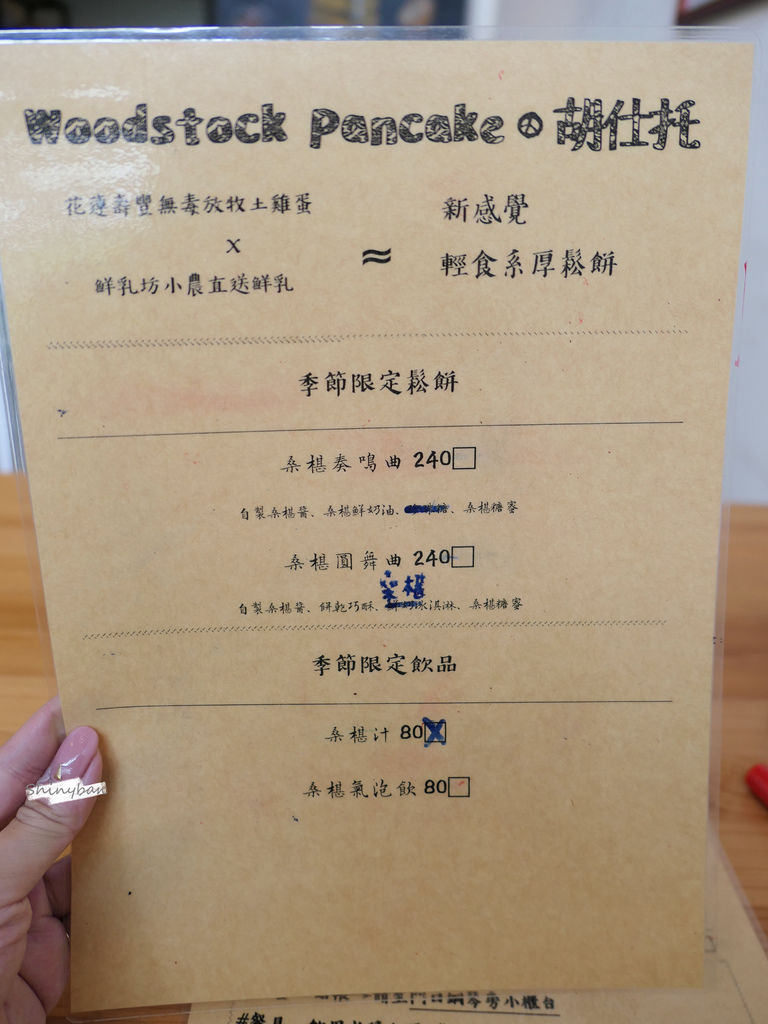 Woodstock Pancake 胡仕托
花蓮壽豐無毒放牧土雞蛋
x
鮮乳坊小農直送鮮乳
≈
新感覺
輕食系厚鬆餅
季節限定鬆餅
桑椹奏鳴曲 240
自製桑椹醬、桑椹鮮奶油、、桑椹糖蜜
桑椹圓舞曲 240
桑椹
自製桑椹醬、餅乾巧酥、冰淇淋、桑椹糖蜜
季節限定飲品
桑椹汁 80 X
桑椹氣泡飲 80
Shinyban
小櫃台